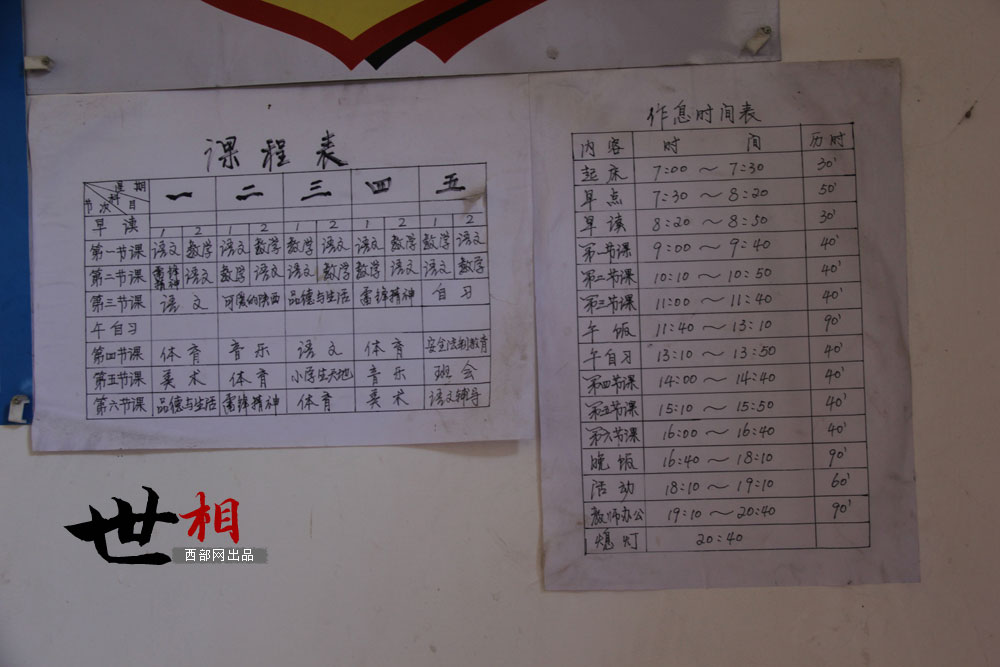 课程表
星期 科目 节次 一 二 三 四 五
早读 1 2 1 2 1 2 1 2 1 2
第一节课 语文 数学 语文 数学 数学 语文 语文 数学 数学 语文
第二节课 雷锋精神 语文 数学 语文 语文 数学 数学 语文 语文 数学
第三节课 语文 可爱的陕西 品德与生活 雷锋精神 自习
午自习
第四节课 体育 音乐 语文 体育 安全法制教育
第五节课 美术 体育 小学生天地 音乐 班会
第六节课 品德与生活 雷锋精神 体育 美术 语文辅导
作息时间表
内容 时间 历时
起床 7:00～7:30 30'
早点 7:30～8:20 50'
早读 8:20～8:50 30'
第一节课 9:00～9:40 40'
第二节课 10:10～10:50 40'
第三节课 11:00～11:40 40'
午饭 11:40～13:10 90'
午自习 13:10～13:50 40'
第四节课 14:00～14:40 40'
第五节课 15:10～15:50 40'
第六节课 16:00～16:40 40'
晚饭 16:40～18:10 90'
活动 18:10～19:10 60'
教师办公 19:10～20:40 90'
熄灯 20:40
世相
西部网出品